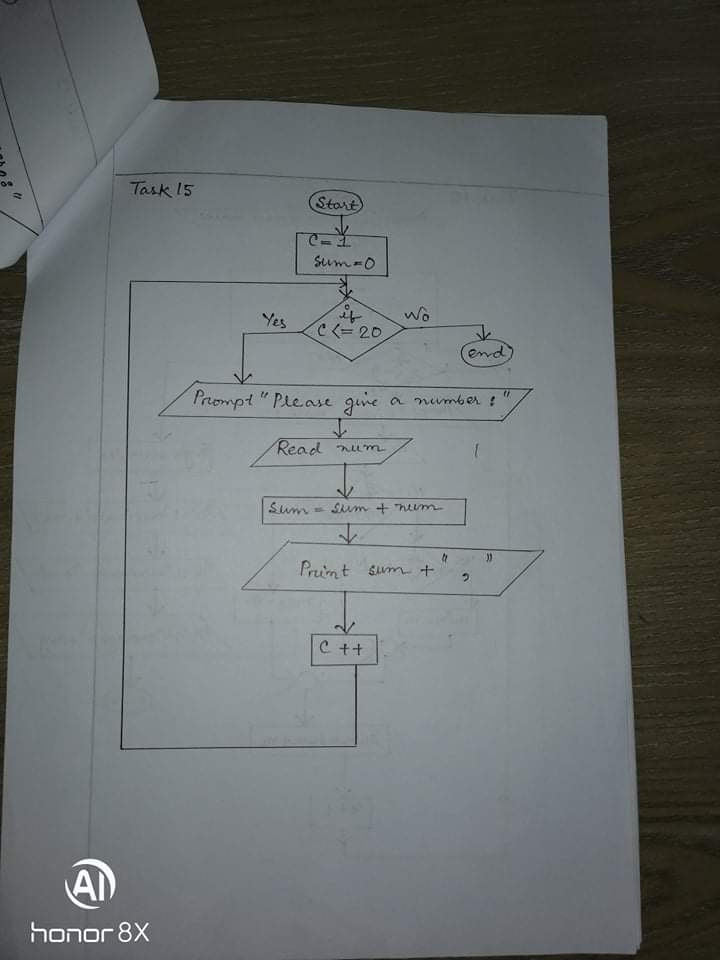 Task 15
Start
C = 1
sum = 0
if
C <= 20
Yes
No
end
Prompt "Please give a number : "
Read num
sum = sum + num
Print sum + " , "
C ++
AI
honor 8X